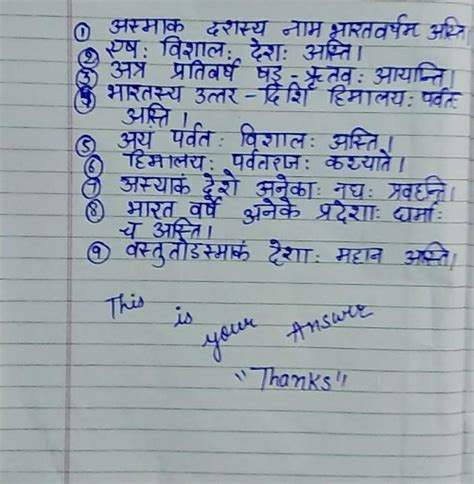 ① अस्माक दशस्य नाम भारतवर्षम अस्ति।
② एष: विशाल: देश: अस्ति।
③ अत्र प्रतिवर्षे षड् - ऋतव: आयान्ति।
④ भारतस्य उत्तर - दिशि हिमालय: पर्वत:
अस्ति।
⑤ अयं पर्वत: विशाल: अस्ति।
⑥ हिमालय: पर्वतराज: कथ्यते।
⑦ अस्याकं देशे अनेका: नद्य: प्रवहन्ति।
⑧ भारत वर्षे अनेके प्रदेशा: धर्मा:
च अस्ति।
⑨ वस्तुतोडस्माकं देशा: महान अस्ति।
This is your Answer
"Thanks"